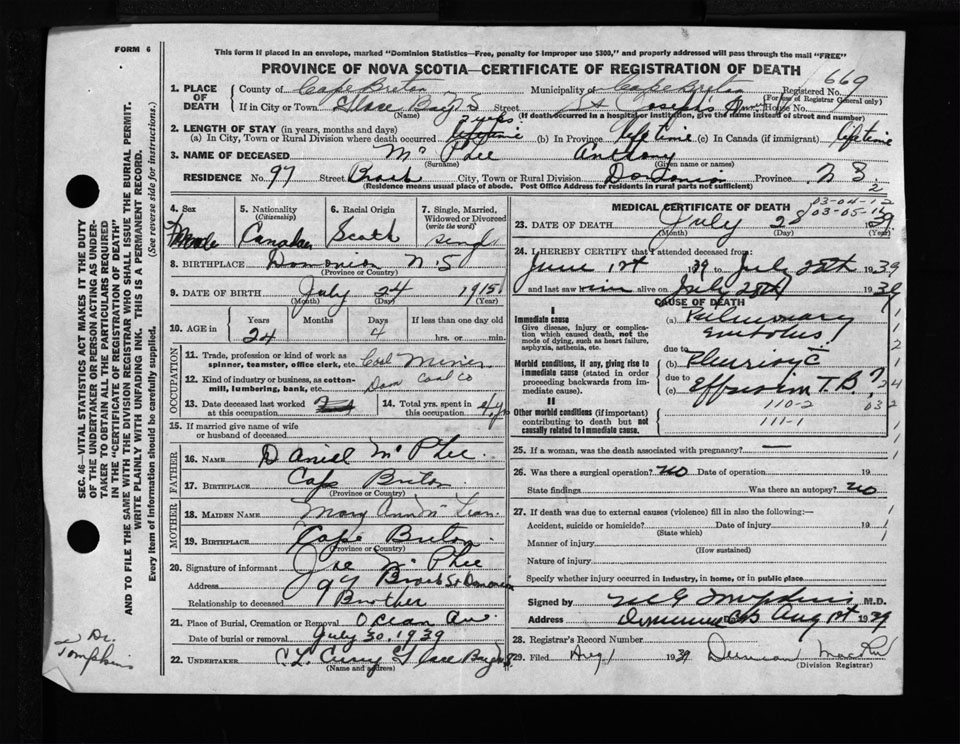 FORM 6
This form if placed in an envelope, marked "Dominion Statistics—Free, penalty for improper use $300," and properly addressed will pass through the mail "FREE"
PROVINCE OF NOVA SCOTIA—CERTIFICATE OF REGISTRATION OF DEATH
1. PLACE OF DEATH County of Cape Breton Municipality of Cape Breton Registered No. 669
(For use of Registrar General only)
If in City or Town Glace Bay N S Street St Joseph's House
(Name) (If death occurred in a hospital or institution, give the name instead of street and number)
2. LENGTH OF STAY (in years, months and days)
(a) In City, Town or Rural Division where death occurred 2 years lifetime (b) In Province lifetime (c) In Canada (if immigrant) lifetime
3. NAME OF DECEASED Mc Phee Anthony
(Surname) (Given name or names)
RESIDENCE No. 97 Street Brook City, Town or Rural Division Dominion Province N S
(Residence means usual place of abode. Post Office Address for residents in rural parts not sufficient) 2
4. Sex 5. Nationality (Citizenship) 6. Racial Origin 7. Single, Married, Widowed or Divorced (write the word)
Male Canadian Scotch Single
8. BIRTHPLACE Dominion N. S
(Province or Country)
9. DATE OF BIRTH July 24 1915
(Month) (Day) (Year)
10. AGE in Years Months Days If less than one day old
24 4 hrs. or min.
OCCUPATION
11. Trade, profession or kind of work as spinner, teamster, office clerk, etc. Coal Miner
12. Kind of industry or business, as cotton-mill, lumbering, bank, etc. Dom Coal Co
13. Date deceased last worked at this occupation 14. Total yrs. spent in this occupation 4 yrs
15. If married give name of wife or husband of deceased
FATHER
16. NAME Daniel Mc Phee
17. BIRTHPLACE Cape Breton
(Province or Country)
MOTHER
18. MAIDEN NAME Mary Ann Mc Lean
19. BIRTHPLACE Cape Breton
(Province or Country)
20. Signature of informant Joe Mc Phee
Address 97 Brook St Dominion
Relationship to deceased Brother
21. Place of Burial, Cremation or Removal Ocean Av.
Date of burial or removal July 30, 1939
22. UNDERTAKER C. L. Curry Glace Bay N S
(Name and address)
MEDICAL CERTIFICATE OF DEATH
03-04-12
03-05-12
23. DATE OF DEATH July 28 1939
(Month) (Day) (Year)
24. I HEREBY CERTIFY that I attended deceased from:
June 1st 1939 to July 28th 1939
and last saw him alive on July 28th 1939
CAUSE OF DEATH
I
Immediate cause
Give disease, injury or complication which caused death, not the mode of dying, such as heart failure, asphyxia, asthenia, etc.
(a) Pulmonary Embolus
due to
Morbid conditions, if any, giving rise to immediate cause (stated in order proceeding backwards from immediate cause).
(b) Pleurisy c̄
due to
(c) Effusion T. B. ?
II
Other morbid conditions (if important) contributing to death but not causally related to immediate cause.
110-2
111-1
25. If a woman, was the death associated with pregnancy? —
26. Was there a surgical operation? no Date of operation 19
State findings Was there an autopsy? no
27. If death was due to external causes (violence) fill in also the following:—
Accident, suicide or homicide? Date of injury 19
(State which)
Manner of injury
(How sustained)
Nature of injury
Specify whether injury occurred in industry, in home, or in public place
Signed by M G Tompkins M.D.
Address Dominion CB Aug 1st 1939
28. Registrar's Record Number
29. Filed Aug 1 1939
(Division Registrar)
SEC. 46—VITAL STATISTICS ACT MAKES IT THE DUTY
OF THE UNDERTAKER OR PERSON ACTING AS UNDER-
TAKER TO OBTAIN ALL THE PARTICULARS REQUIRED
IN THE "CERTIFICATE OF REGISTRATION OF DEATH"
AND TO FILE THE SAME WITH THE DIVISION REGISTRAR WHO SHALL ISSUE THE BURIAL PERMIT.
WRITE PLAINLY WITH UNFADING INK. THIS IS A PERMANENT RECORD.
Every item of information should be carefully supplied. (See reverse side for instructions.)
Dr. Tompkins